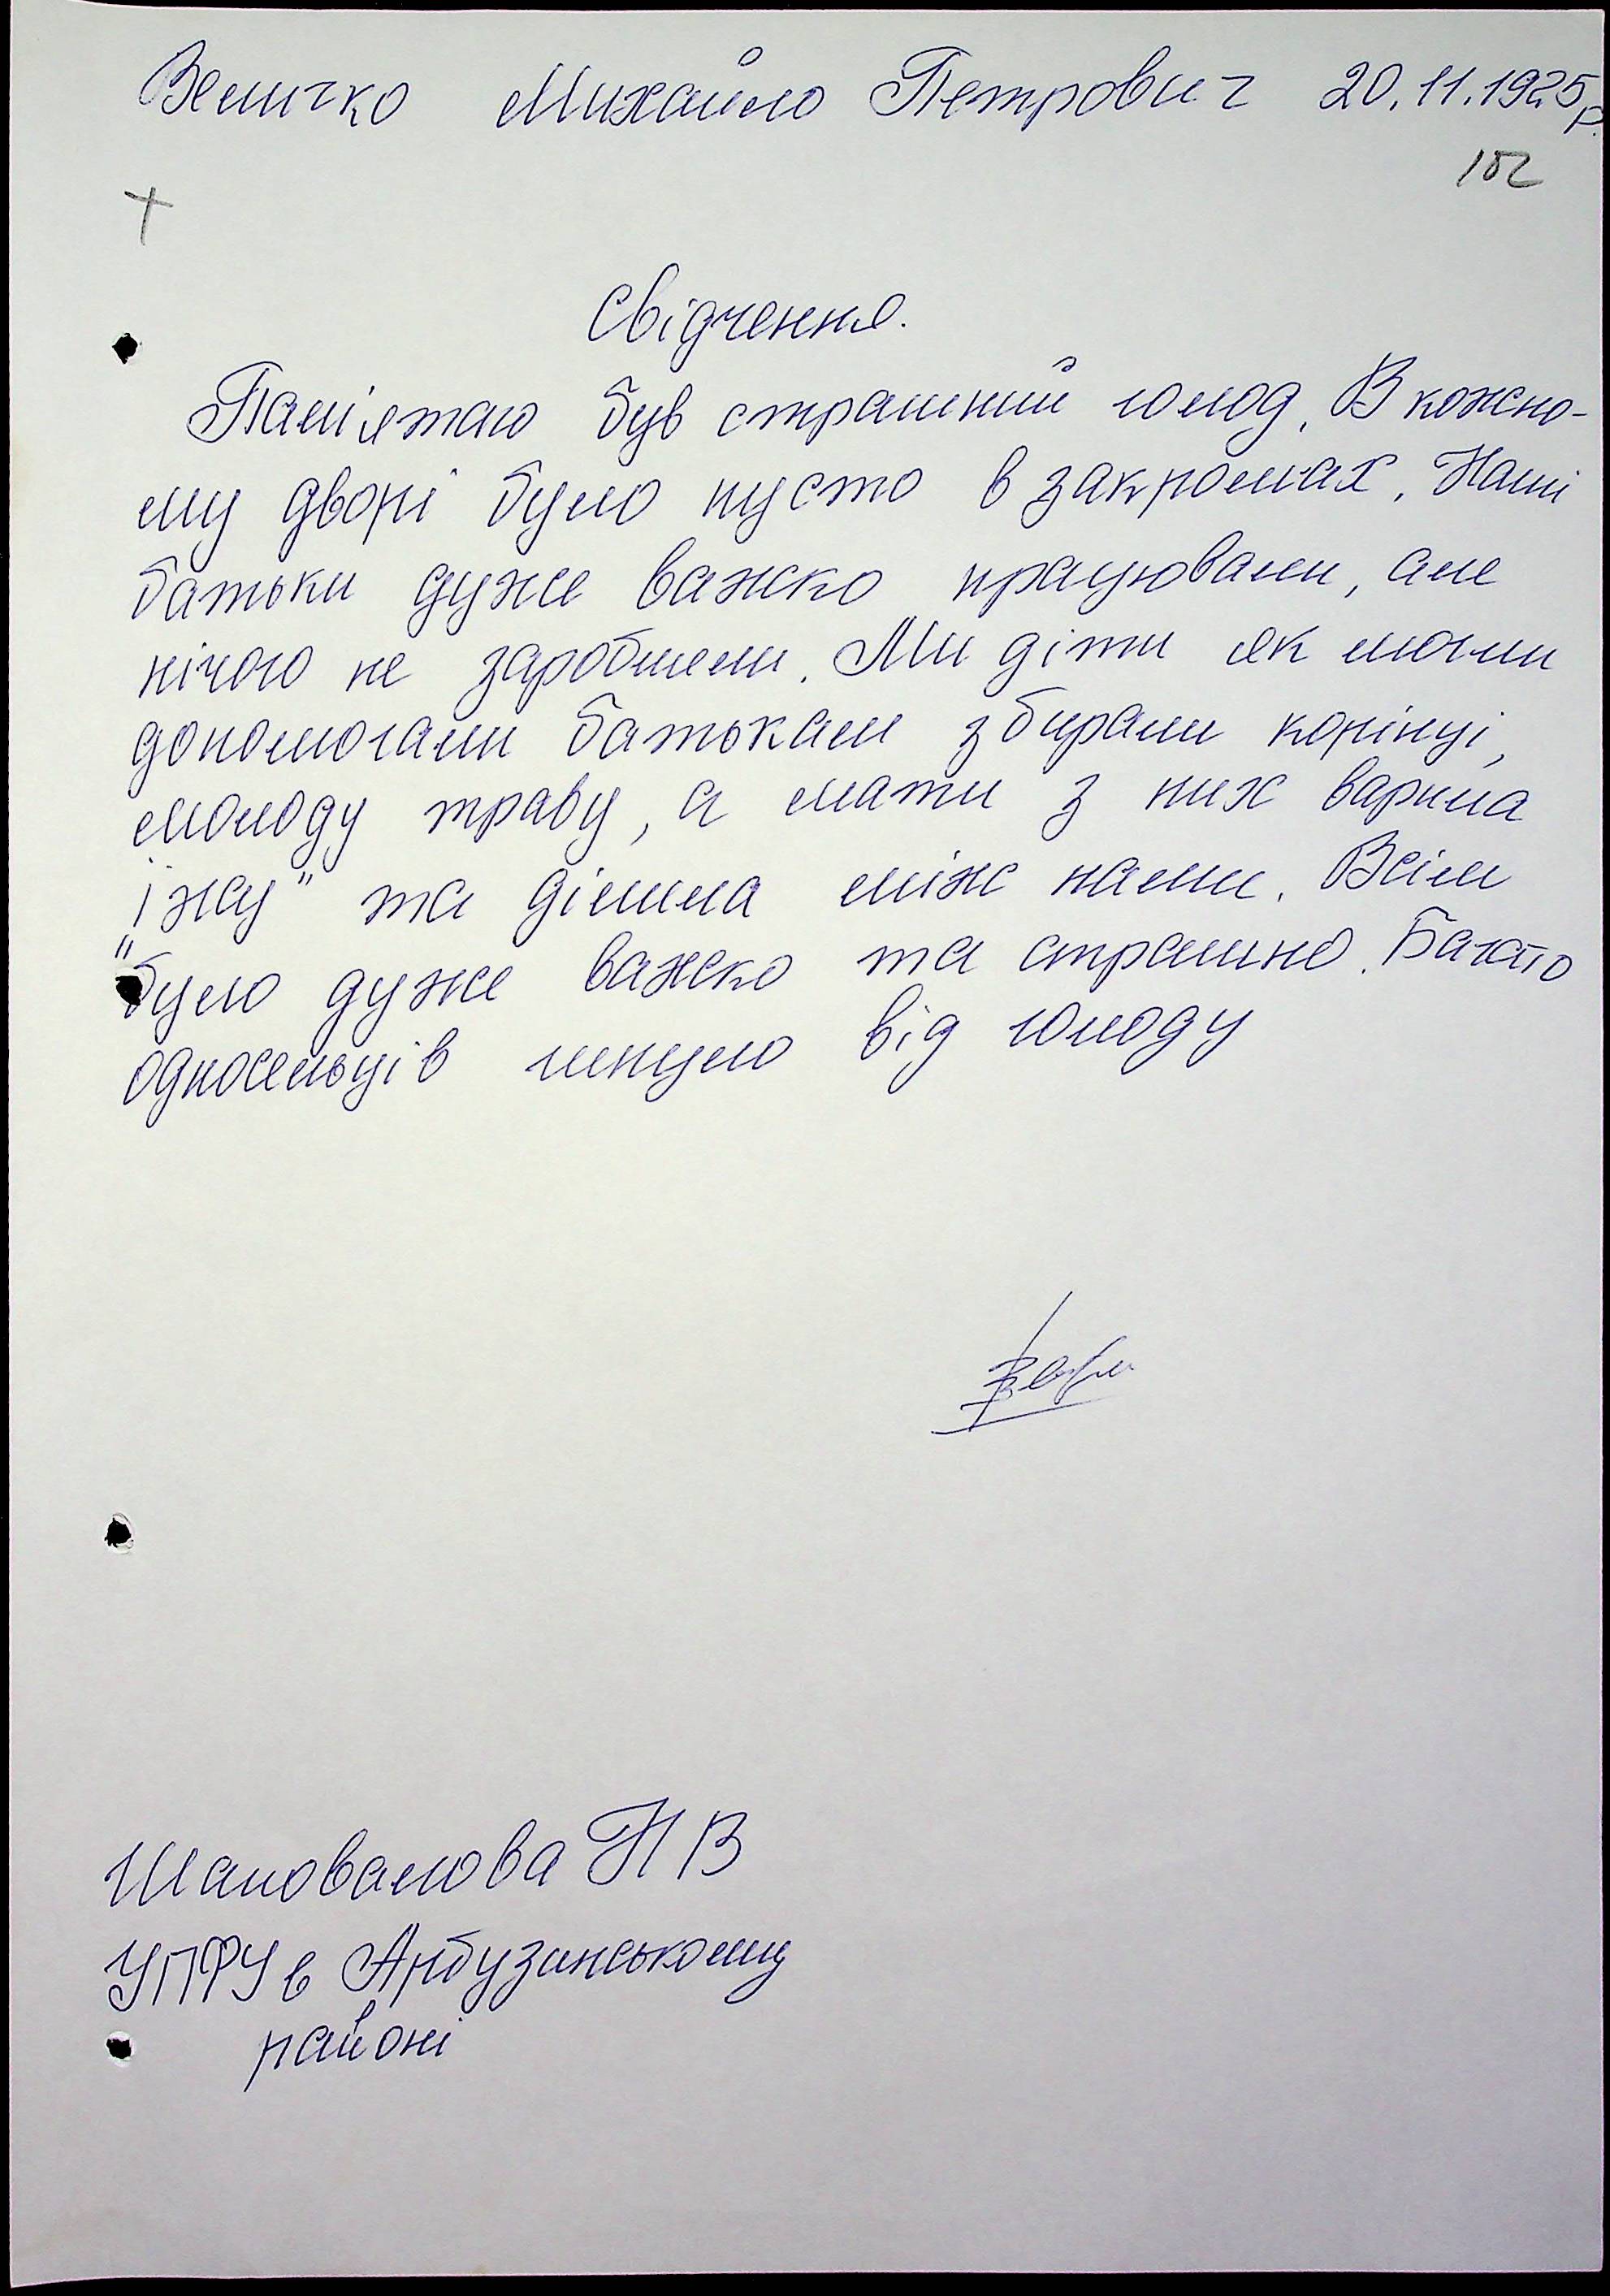 Величко Михайло Петрович 20.11.1925р.
102
Свідчення.
Пам'ятаю був страшний голод. В кожно-
му дворі було пусто в закромах. Наші
батьки дуже важко працювали, але
нічого не заробляли. Ми діти як могли
допомогали батькам збирали корінці,
молоду траву, а мати з них варила
"їжу" та ділила між нами. Всім
було дуже важко та страшно. Багато
односельців гинуло від голоду
Шаповалова Н В
УПФУ в Арбузинському
районі